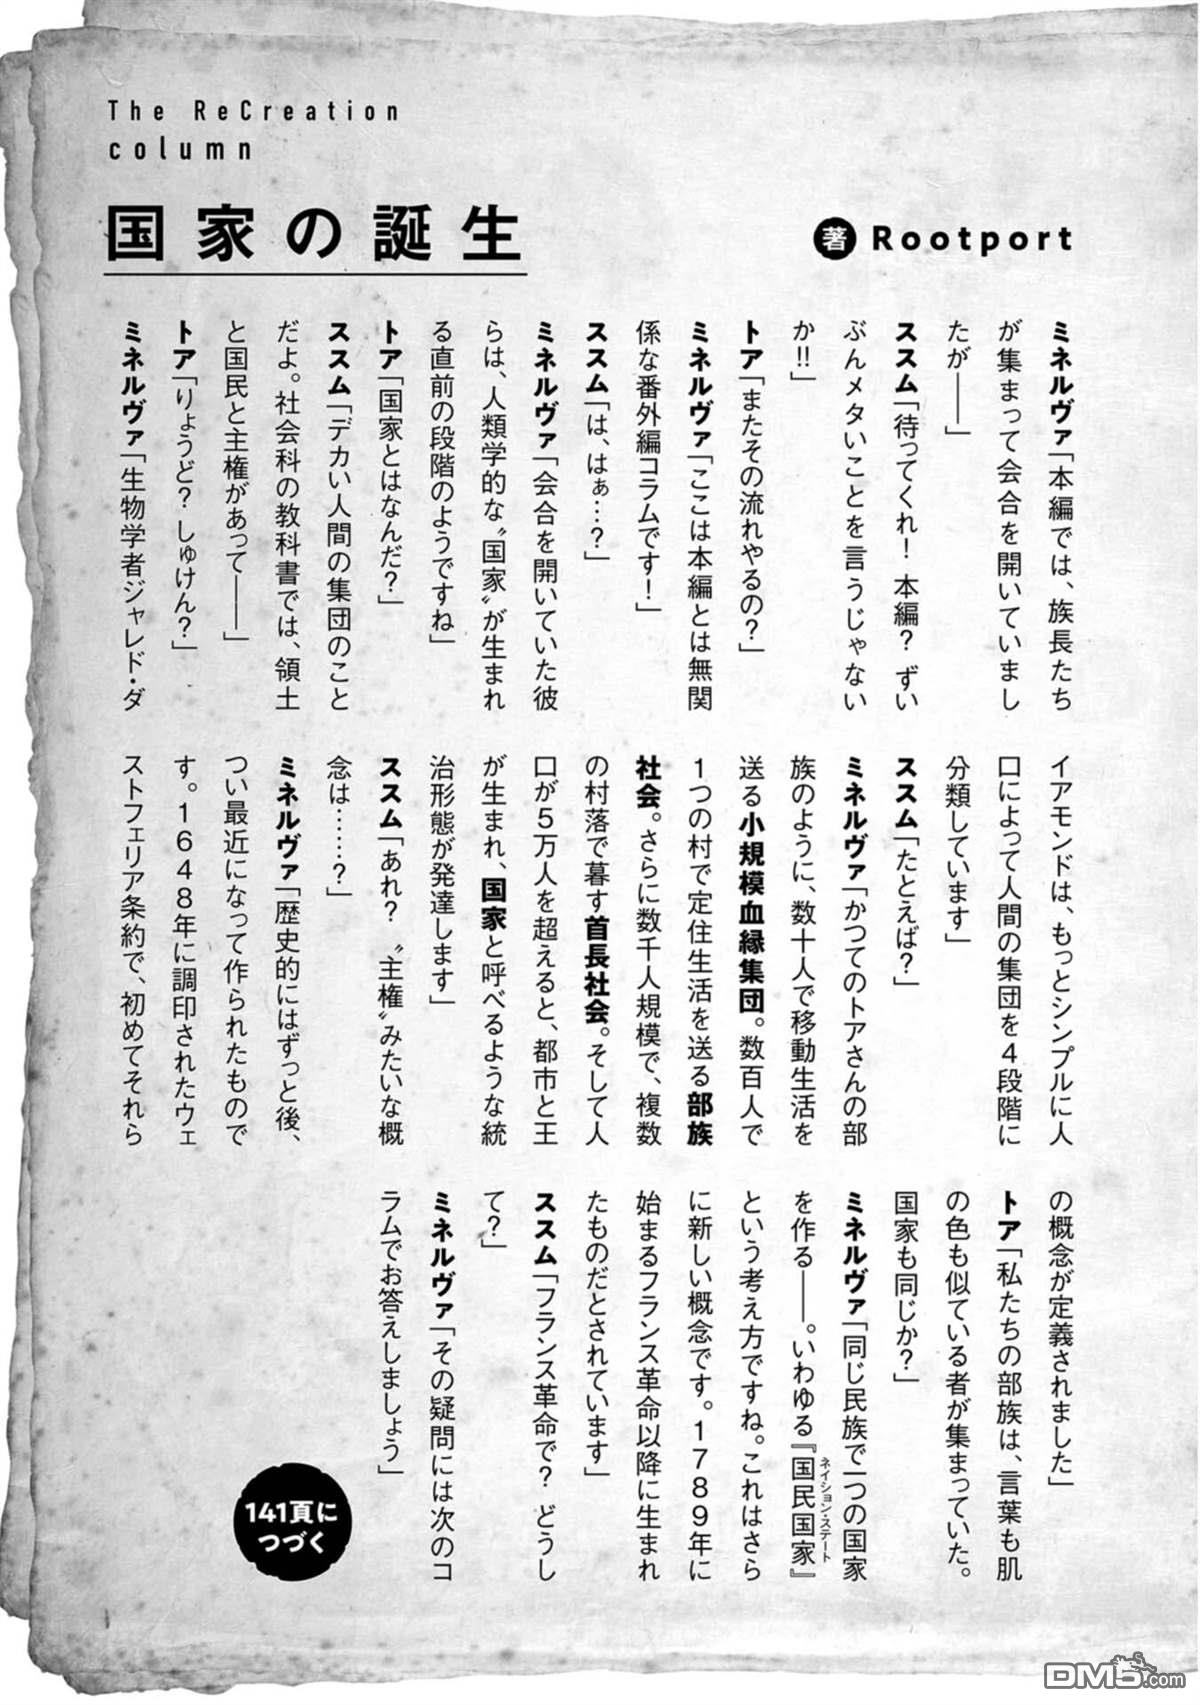 The ReCreation
column
国家の誕生
著 Rootport
ミネルヴァ「本編では、族長たち
が集まって会合を開いていまし
たが――」
ススム「待ってくれ！本編？ずい
ぶんメタいことを言うじゃない
か!!」
トア「またその流れやるの？」
ミネルヴァ「ここは本編とは無関
係な番外編コラムです！」
ススム「は、はぁ…？」
ミネルヴァ「会合を開いていた彼
らは、人類学的な〝国家〟が生まれ
る直前の段階のようですね」
トア「国家とはなんだ？」
ススム「デカい人間の集団のこと
だよ。社会科の教科書では、領土
と国民と主権があって――」
トア「りょうど？しゅけん？」
ミネルヴァ「生物学者ジャレド・ダ
イアモンドは、もっとシンプルに人
口によって人間の集団を４段階に
分類しています」
ススム「たとえば？」
ミネルヴァ「かつてのトアさんの部
族のように、数十人で移動生活を
送る小規模血縁集団。数百人で
１つの村で定住生活を送る部族
社会。さらに数千人規模で、複数
の村落で暮す首長社会。そして人
口が５万人を超えると、都市と王
が生まれ、国家と呼べるような統
治形態が発達します」
ススム「あれ？〝主権〟みたいな概
念は……？」
ミネルヴァ「歴史的にはずっと後、
つい最近になって作られたもので
す。１６４８年に調印されたウェ
ストフェリア条約で、初めてそれら
の概念が定義されました」
トア「私たちの部族は、言葉も肌
の色も似ている者が集まっていた。
国家も同じか？」
ミネルヴァ「同じ民族で一つの国家
を作る――。いわゆる『国民国家』
ネイション・ステート
という考え方ですね。これはさら
に新しい概念です。１７８９年に
始まるフランス革命以降に生まれ
たものだとされています」
ススム「フランス革命で？どうし
て？」
ミネルヴァ「その疑問には次のコ
ラムでお答えしましょう」
141頁に
つづく
DM5.com